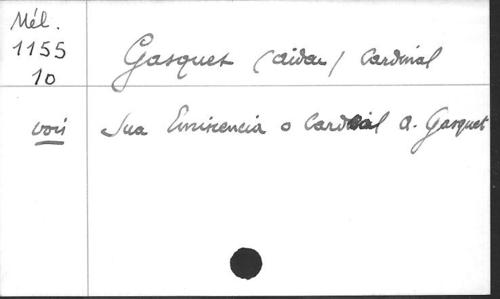 Mél.
1155
10
Gasquet (Aidan) Cardinal
voir Sua Eminencia o Cardeal A. Gasquet